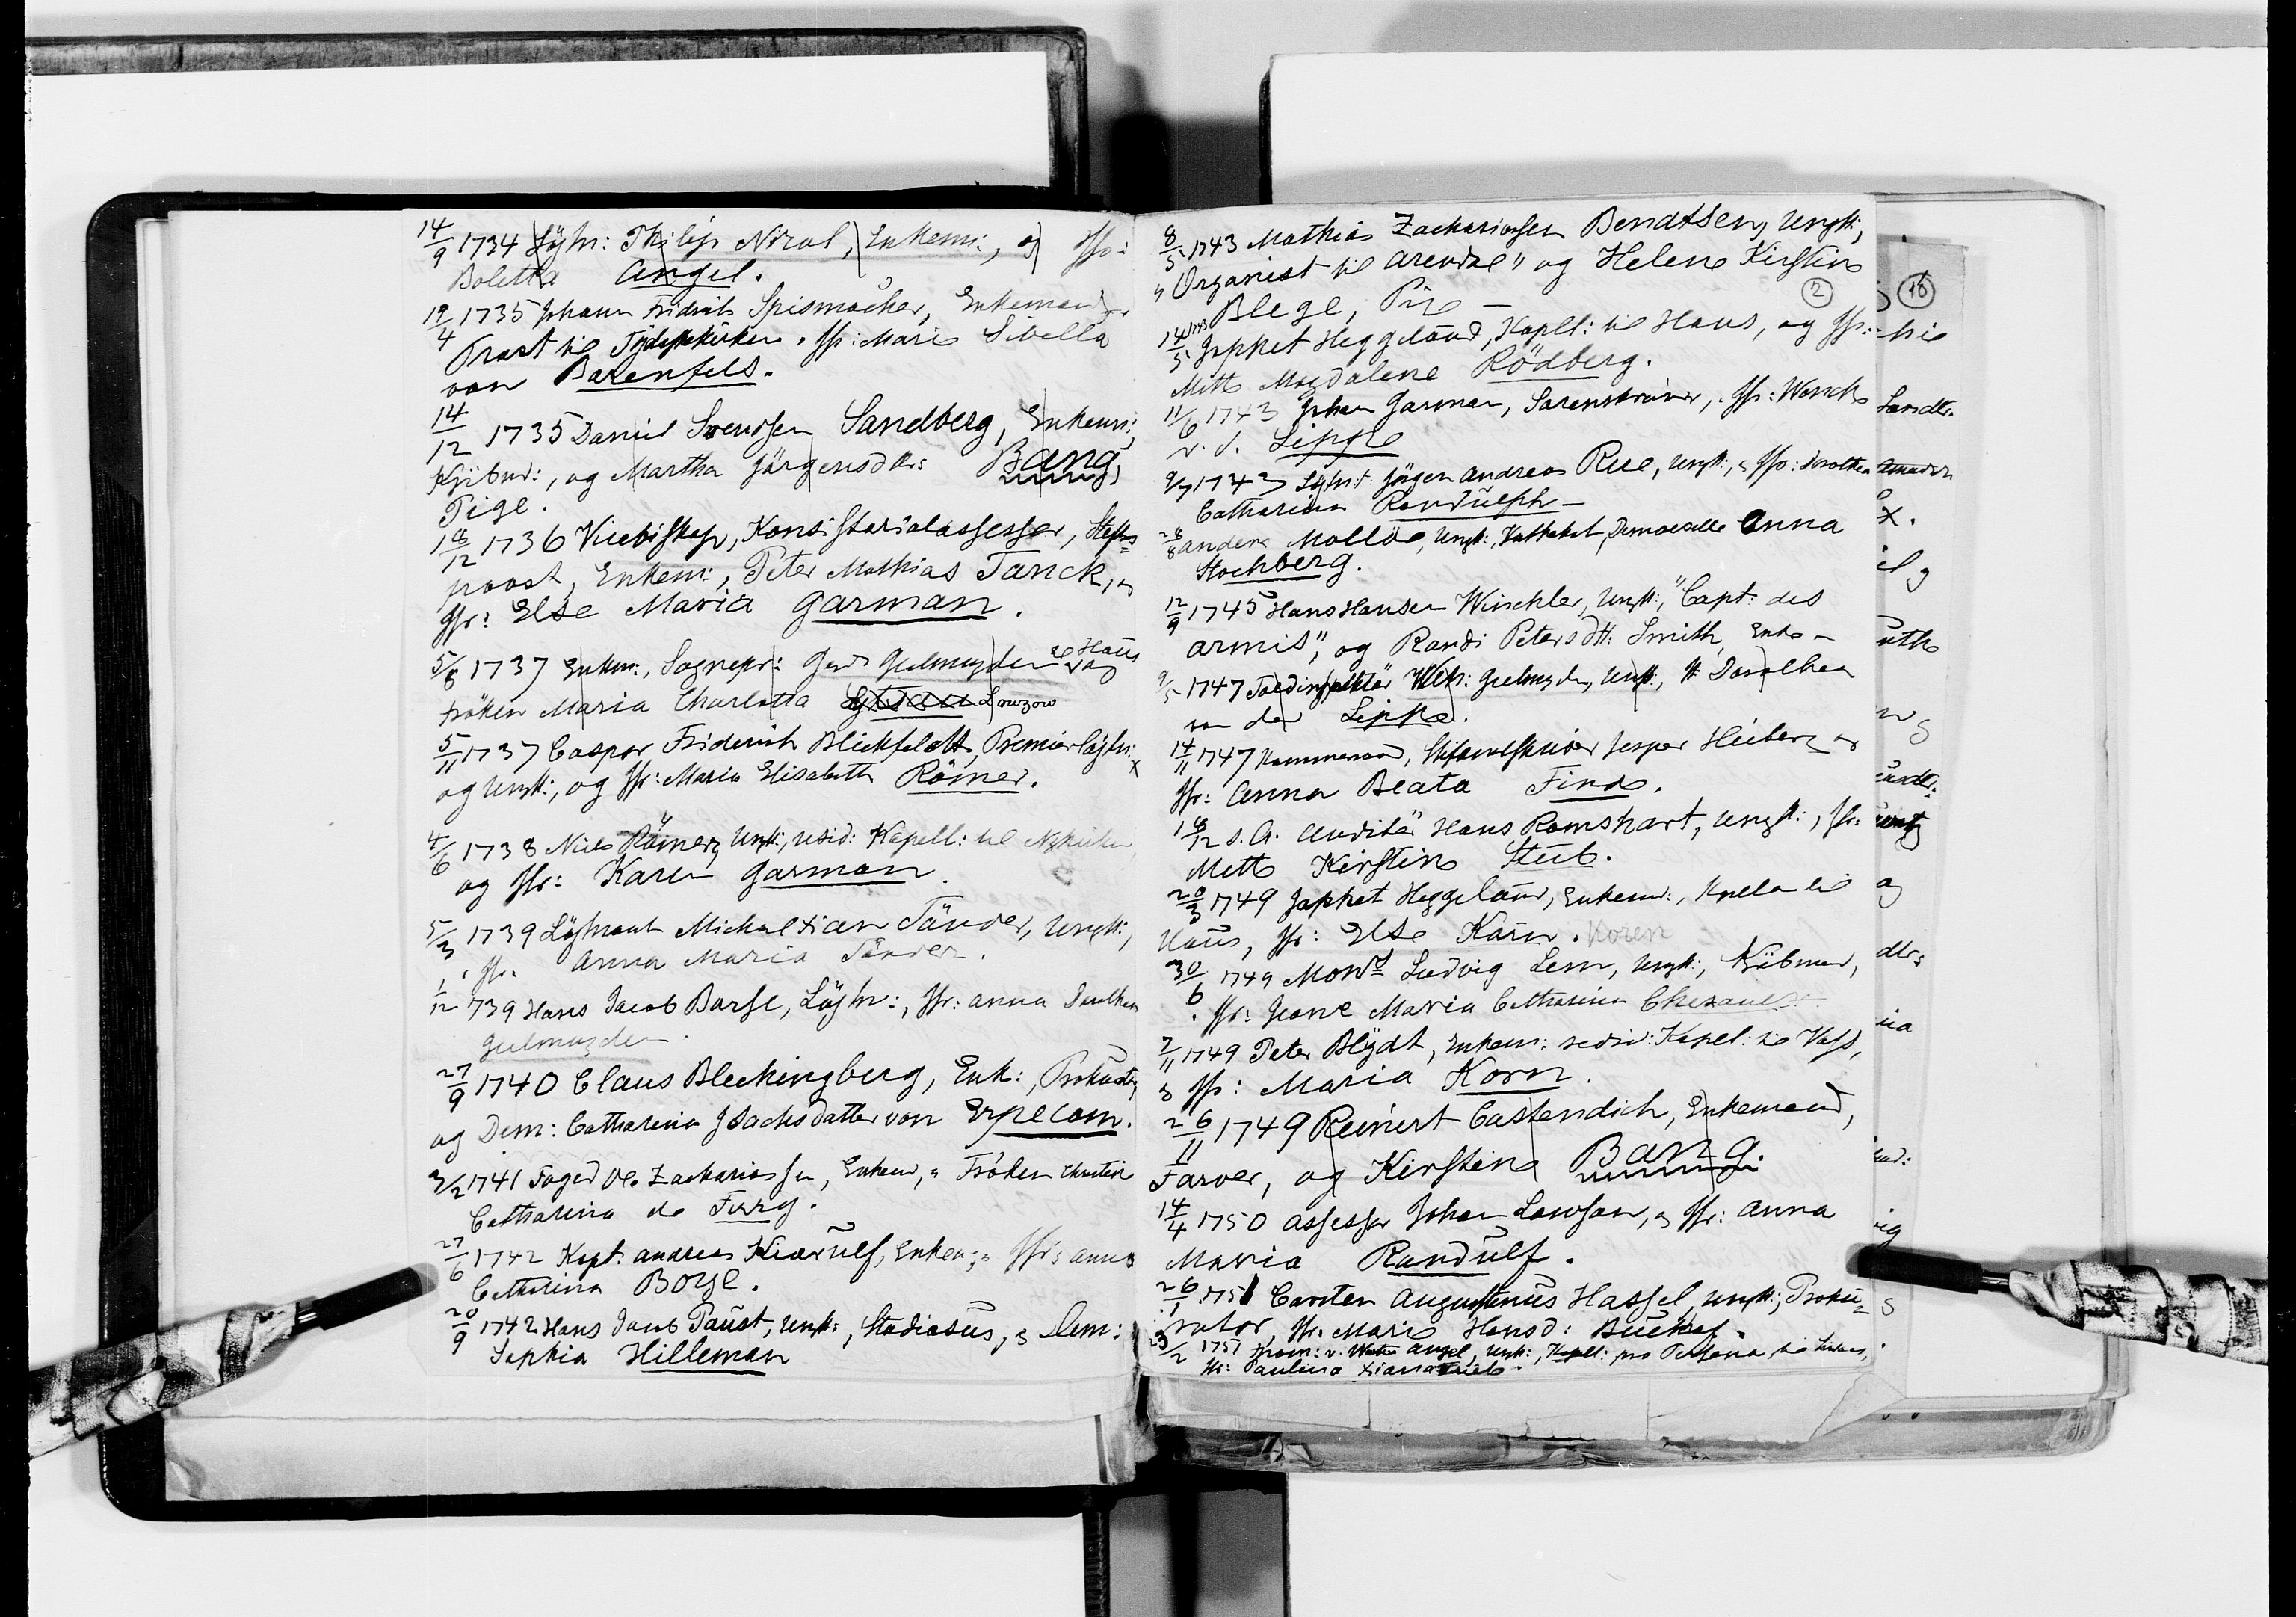 14/9 1734 Løjtn: Philip Nicol, Enkem:, og Jfr:
Boletta Angel.
19/4 1735 Johann Fridrich Spismacher, Enkemand,
Prast til Tydskekirken. Jfr: Marie Sibella
von Barenfels.
14/12 1735 Daniel Svendsen Sandberg, Enkem:,
Kjøbmd:, og Martha Jørgensdtr: Bang,
Pige.
18/12 1736 Vicebiskop, Konsistorialassessor, Stifts=
provst, Enkem:, Peter Mathias Tanck, og
Jfr: Else Maria Garman.
5/8 1737 Enkm:, Sognepr: Gerd Geelmuyden til Haus og
frøken Maria Charlotta Lowzow
5/11 1737 Caspar Friderich Blickfeldt, Premierløjtn:
og Ungk:, og Jfr: Maria Elisabeth Römer. x
4/6 1738 Niels Römer, Ungk:, resid: Kapell: til Nykirken,
og Jfr: Karen Garman.
5/3 1739 Løjtnant Michael xian Tønder, Ungk:,
Jfr. Anna Maria Tønder.
1/12 739 Hans Jacob Barse, Løjtn:, Jfr: Anna Dorothea
Geelmuyden.
27/9 1740 Claus Bleckingberg, Enk:, Prokurator,
og Dem: Catharina Isachsdatter von Erpecom.
3/2 1741 Foged Ole Zachariassen, Enkem, Frøken Christine
Catharina de Ferry.
27/6 1742 Kapt: Andreas Kierulf, Enkem:, Jfr: Anna
Catharina Borse.
20/9 1742 Hans Jacob Paust, Ungk:, Studiosus, & Dem:
Sophia Hilleman
8/5 1743 Mathias Zachariassen Bendtsen, Ungk:,
"Organist til Arendal" og Helene Kirstine
Blege, Pige –
2
14/5 1743 Japhet Heggelund, Kapll: til Haus, og Jfr:
Mette Magdalene Rödberg.
11/6 1743 Johan Garman, Sorenskriver, Jfr: Wenche
v. d. Lippe
9/7 1743 Løjtn: Jørgen Andreas Rue, Ungk:, & Jfr: Dorothea
Catharina Randulph –
28/8 Anders Mollöe, Ungk:, Kathekat, Demoiselle Anna
Stochberg.
12/9 1745 Hans Hansen Winchler, Ungk:, "Capt: des
armis", og Randi Petersdtr: Smith, Enke –
9/5 1747 Toldinspektør Wilh: Geelmuyden, Ungk:, Dorothea
von der Lippe.
14/11 1747 Kammerraad, Stiftamtskriver Jesper Heiberg og
Jfr: Anna Beata Finde.
18/12 s. A. Auditør Hans Ramshart, Ungk:, Jfr:
Mette Kirstine Stub.
20/3 1749 Japhet Heggelund, Enkem:, Kapellan til
Haus, Jfr: Else Korn. Koren
30/6 1749 Monsr Ludvig Lem, Ungk:, Kjøbmand,
Jfr: Jeane Maria Catharina Chezaulx.
7/11 1749 Peter Blydt, Enkem: resid: Kapel: til Voss,
& Jfr: Maria Korn.
26/11 1749 Reinert Castendich, Enkemand,
Farver, og Kirstine Bang.
14/4 1750 Assessor Johan Lowson, & Jfr: Anna
Maria Randulf.
26/1 1751 Carsten Augustinus Hassel, Ungk:, Proku=
rator, Jfr: Marie Hansd: Büchaf.
23/2 1751 Angel, Ungk:, Kapll: pro Persona til
Jfr: Paulina xiana
16